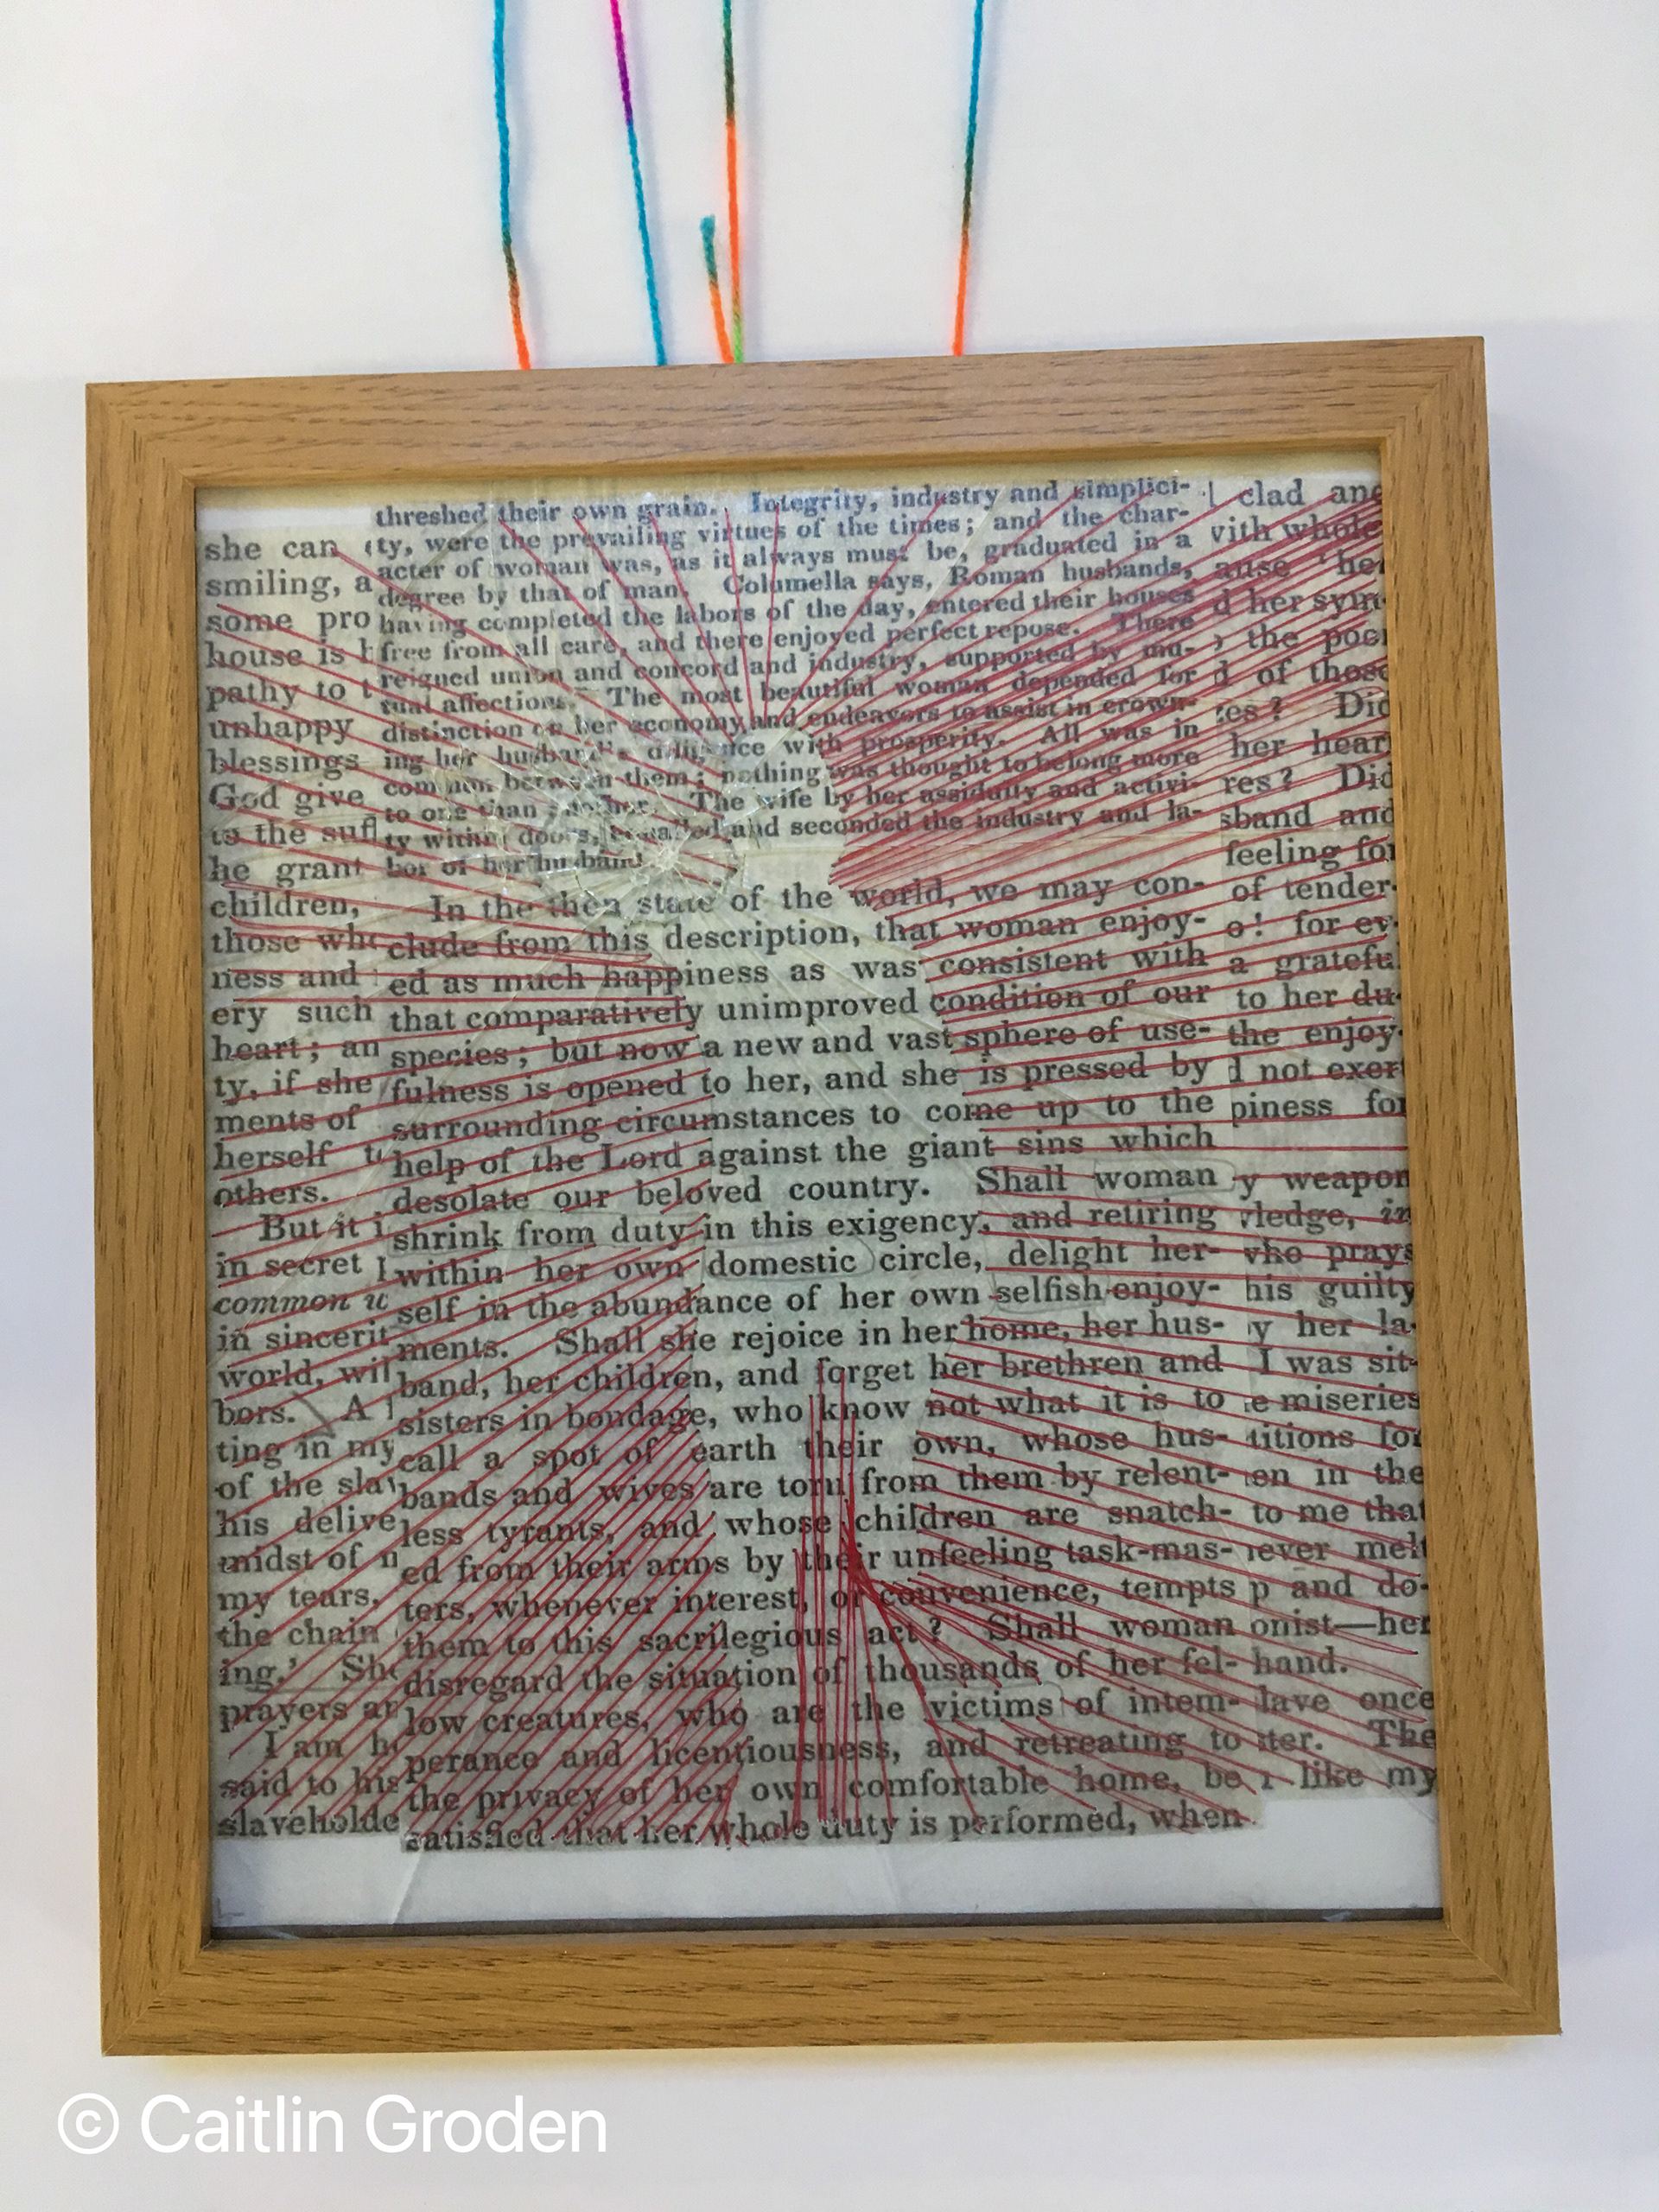 she can
smiling, a
some pro
house is
pathy to t
unhappy
blessings
God give
to the suf
he grant
children,
those who
ness and
ery such
heart; an
ty, if she
ments of
herself t
others.
But it i
in secret
common
in sincerit
world, wil
bors. A
ting in my
of the sla
his delive
midst of
my tears,
the chain
ing.' She
prayers an
I am
said to his
slaveholde
threshed their own grain. Integrity, industry and simplici-
ty, were the prevailing virtues of the times; and the char-
acter of woman was, as it always must be, graduated in a
degree by that of man. Columella says, Roman husbands,
having completed the labors of the day, entered their houses
free from all care, and there enjoyed perfect repose. There
reigned union and concord and industry, supported by mu-
tual affections. The most beautiful woman depended for
distinction on her economy and endeavors to assist in crown-
ing her husband's diligence with prosperity. All was in
common between them; nothing was thought to belong more
to one than another. The wife by her assiduity and activi-
ty within doors, equalled and seconded the industry and la-
bor of her husband
In the then state of the world, we may con-
clude from this description, that woman enjoy-
ed as much happiness as was consistent with
that comparatively unimproved condition of our
species; but now a new and vast sphere of use-
fulness is opened to her, and she is pressed by
surrounding circumstances to come up to the
help of the Lord against the giant sins which
desolate our beloved country. Shall woman
shrink from duty in this exigency, and retiring
within her own domestic circle, delight her-
self in the abundance of her own selfish enjoy-
ments. Shall she rejoice in her home, her hus-
band, her children, and forget her brethren and
sisters in bondage, who know not what it is to
call a spot of earth their own, whose hus-
bands and wives are torn from them by relent-
less tyrants, and whose children are snatch-
ed from their arms by their unfeeling task-mas-
ters, whenever interest, or convenience, tempts
them to this sacrilegious act? Shall woman
disregard the situation of thousands of her fel-
low creatures, who are the victims of intem-
perance and licentiousness, and retreating to
the privacy of her own comfortable home, be
satisfied that her whole duty is performed, when
clad and
with whole
'her
d her sym-
the poor
d of those
Did
her heart
Did
sband and
feeling for
of tender-
for ev-
a grateful
to her du-
the enjoy-
not exert
piness for
y weapon
in
who prays
his guilty
y her la-
I was sit-
e miseries
for
en in the
to me that
never melt
p and do-
onist—her
hand.
lave once
The
like my
© Caitlin Groden